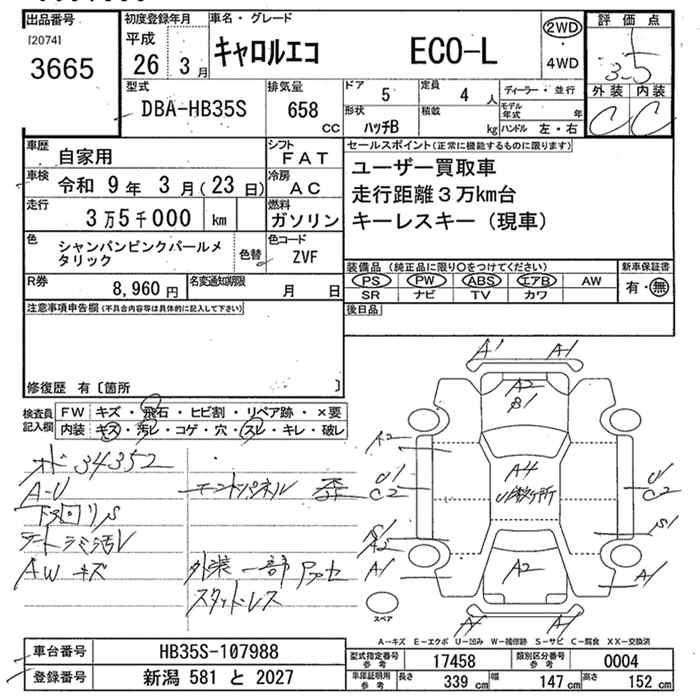 出品番号
[2074]
3665
初度登録年月
平成
26年 3月
車名・グレード
キャロルエコ ECO-L
2WD
・
4WD
評価点
3.5
外装 内装
C C
型式
DBA-HB35S
排気量
658 CC
ドア 5
定員 4 人
形状 ハッチB
積載 kg
ディーラー・並行
モデル年式 年
ハンドル 左・右
車歴 自家用
シフト FAT
車検 令和 9年 3月(23日)
冷房 AC
走行 3万5千000 km
燃料 ガソリン
色 シャンパンピンクパールメ
タリック
色替
色コード ZVF
R券 8,960 円
名変通知期限 月 日
注意事項申告欄(不具合内容等は具体的に記入して下さい)
修復歴 有〔箇所 〕
セールスポイント(正常に機能するものに限ります)
ユーザー買取車
走行距離3万km台
キーレスキー(現車)
装備品(純正品に限り○をつけてください)
PS PW ABS エアB AW
SR ナビ TV カワ
新車保証書
有・無
後日品
検査員
記入欄
FW キズ・飛石・ヒビ割・リペア跡・×要
内装 キズ・汚レ・コゲ・穴・スレ・キレ・破レ
オド 34352
A-U
下回りS
シミ汚レ
AW キズ
エンドパネル 歪
外装一部
スタッドレス
A1 A1
A2
B1
A2
A4
U1
C2
U1
C2
A2
S1
A1
A2
A1
A1
A1
スペア
A-キズ E-エクボ U-凹み W-補修跡 S-サビ C-腐食 XX-交換済
車台番号 HB35S-107988
登録番号 新潟 581 と 2027
型式指定番号
参考
17458
類別区分番号
参考
0004
車庫証明用
参考
長さ 339 cm
幅 147 cm
高さ 152 cm